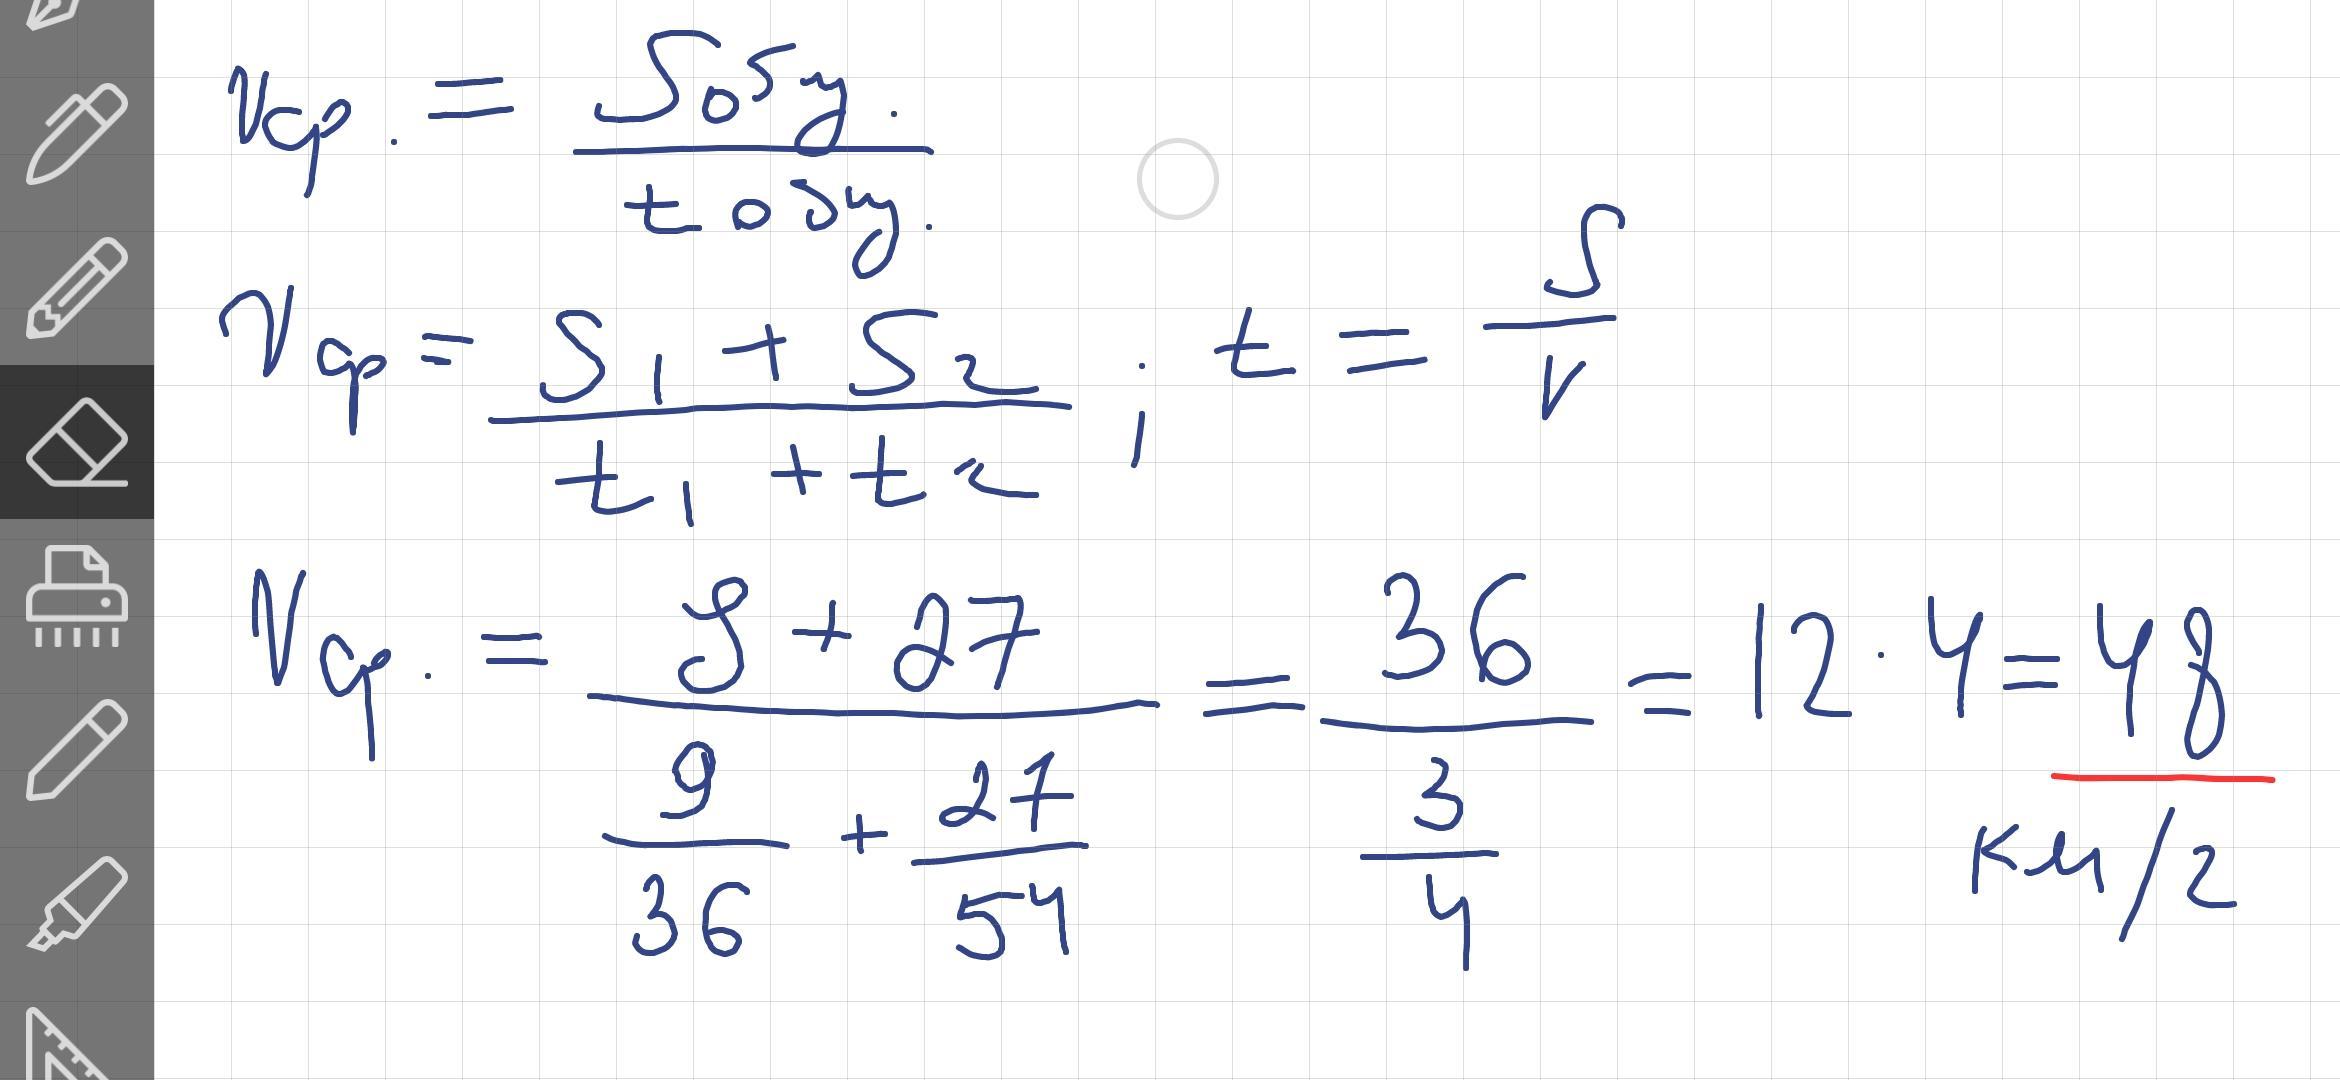 Vср. = Sобщ. / tобщ.
Vср = (S₁ + S₂) / (t₁ + t₂) ; t = S / V
Vср. = (9 + 27) / (9/36 + 27/54) = 36 / (3/4) = 12 · 4 = 48
км/г